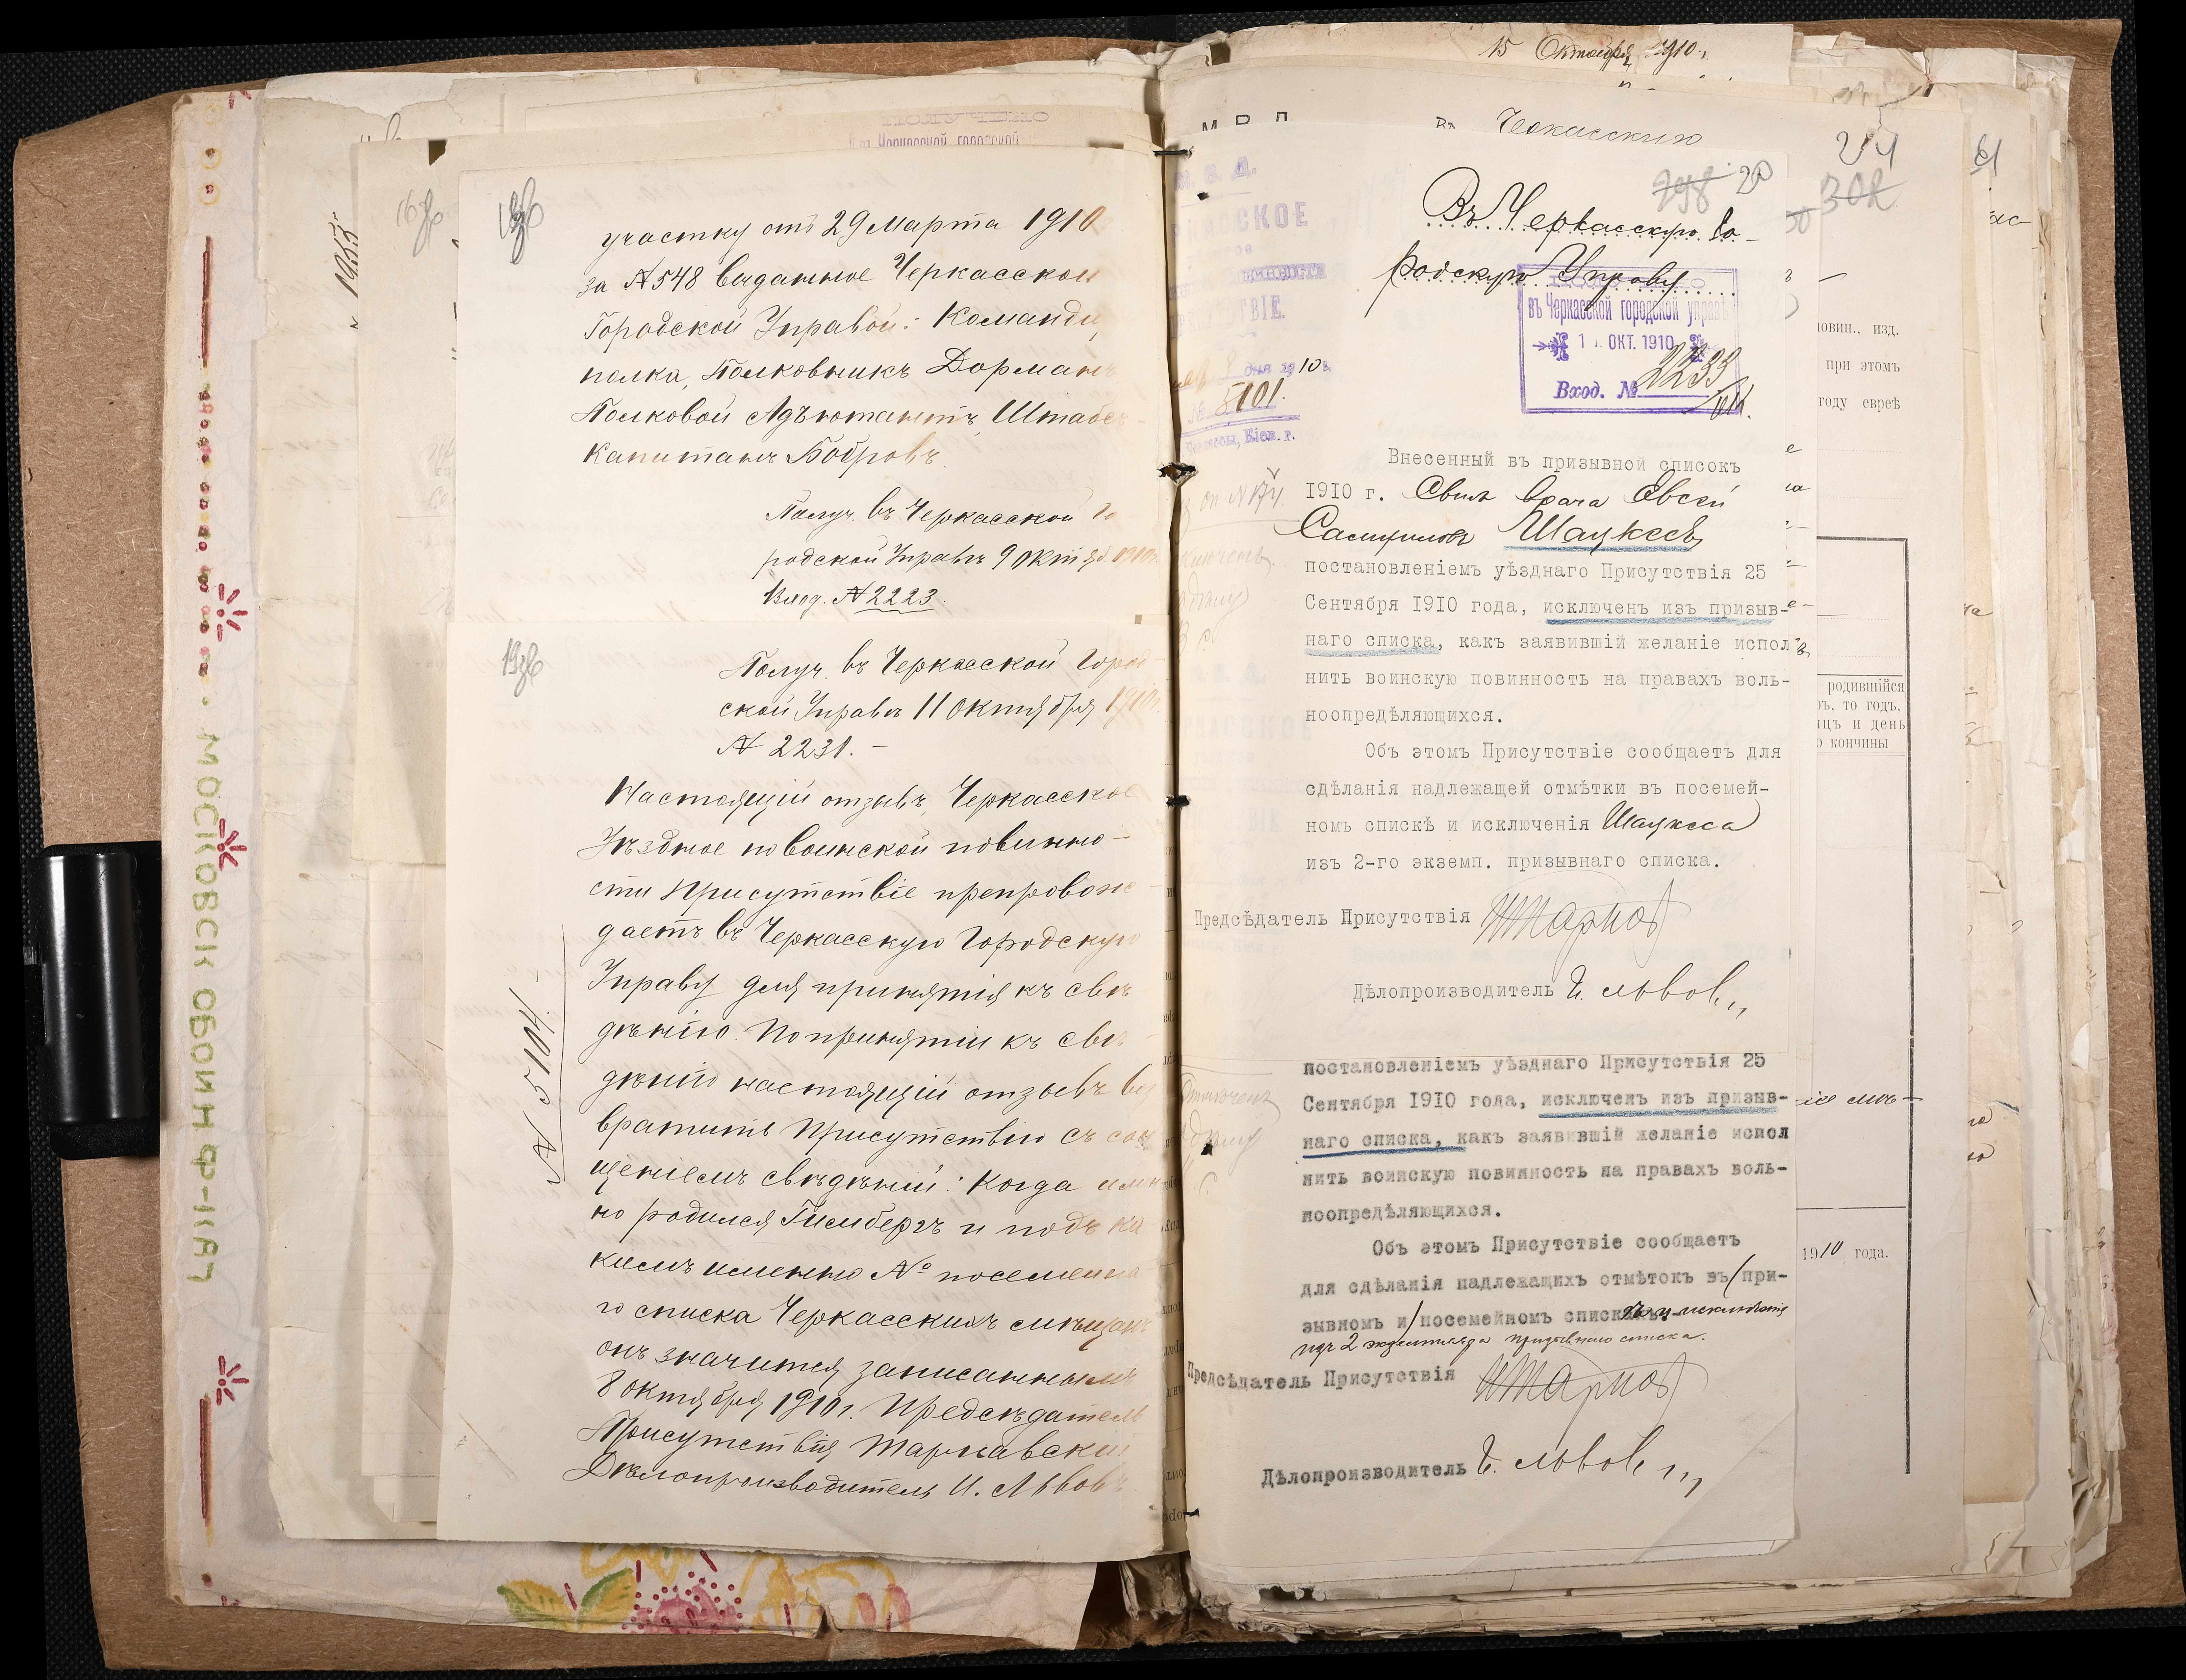 участку отъ 29 Марта 1910
за № 548 выданное Черкасской
Городской Управой: Команди
полка, Полковникъ Дорманъ
Полковой Адъютантъ, Штабсъ
Капитанъ Бобровъ.
Получ. въ Черкасской Го
родской Управѣ 9 Октяб 1910
Вход. № 2223.
19об
Получ. въ Черкасской Город
ской Управѣ 11 Октября 1910
№ 2231. –
Настоящій отзывъ, Черкасское
Уѣздное по воинской повинно-
сти Присутствіе препровож
даетъ въ Черкасскую Городскую
Управу для принятія къ свѣ
дѣнію. По принятіи къ свѣ
дѣнію настоящій отзывъ воз
вратить Присутствію съ сооб
щеніемъ свѣдѣній: Когда имен
но родился Гимбергъ и подъ ка
кимъ именно № посемейна
го списка Черкасскихъ мѣщанъ
онъ значится записаннымъ
8 октября 1910 г. Предсѣдатель
Присутствія Тарнавскій
Дѣлопроизводитель И. Львовъ
№ 5104.
1955
МОСКОВСК ОБОИН Ф-КАЯ
15 Октября 1910 г.
Въ Черкасскую
298 20
24
302
61
Въ Черкасскую Го-
родскую Управу
въ Черкасской городской управѣ
1 ОКТ. 1910
Вход. № 2233
М. В. Д.
СКОЕ
ТВІЕ.
1910 г.
№ 5101.
Черкассы, Кіев. г.
Внесенный въ призывной списокъ
1910 г. Сынъ врача Евсей
Самуиловъ Шацкесъ,
постановленіемъ уѣзднаго Присутствія 25
Сентября 1910 года, исключенъ изъ призыв-
наго списка, какъ заявившій желаніе испол
нить воинскую повинность на правахъ воль-
ноопредѣляющихся.
Объ этомъ Присутствіе сообщаетъ для
сдѣланія надлежащей отмѣтки въ посемей-
номъ спискѣ и исключенія Шацкеса
изъ 2-го экземп. призывнаго списка.
Предсѣдатель Присутствія
Дѣлопроизводитель И. Львовъ
постановленіемъ уѣзднаго Присутствія 25
Сентября 1910 года, исключенъ изъ призыв-
наго списка, какъ заявившій желаніе испол
нить воинскую повинность на правахъ воль-
ноопредѣляющихся.
Объ этомъ Присутствіе сообщаетъ
для сдѣланія надлежащихъ отмѣтокъ въ (при-
зывномъ и) посемейномъ спискахъ и исключенія
изъ 2 экземпляра призывнаго списка.
Предсѣдатель Присутствія
Дѣлопроизводитель И. Львовъ
овин.. изд.
при этомъ
году еврей
родившійся
ъ, то годъ,
яцъ и день
о кончины
1910 года.